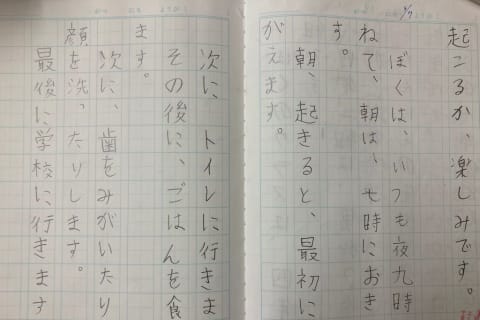 起こるか、楽しみです。
ぼくは、いつも夜九時
ねて、朝は、七時におき
す。
朝、起きると、最初に
がえます。
次に、トイレに行きま
その後に、ごはんを食
ます。
次に、歯をみがいたり
顔を洗ったりします。
最後に学校に行きます